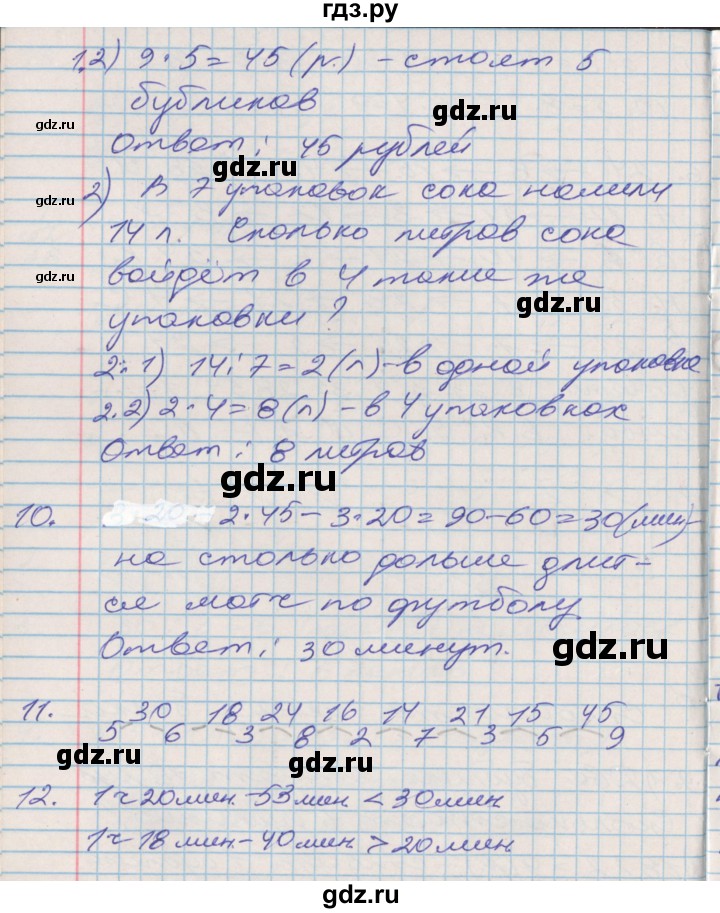 гдз.ру
1.2) 9·5=45(р.) - стоят 5
бубликов
gdz.ru
gdz.ru
Ответ: 45 рублей
gdz.ru
2) В 7 упаковок сока налили
gdz.ru
14 л. Сколько литров сока
войдёт в 4 такие же
gdz.ru
gdz.ru
упаковки?
2.1) 14:7=2(л) - в одной упаковке
2.2) 2·4=8(л) - в 4 упаковках
Ответ: 8 литров
gdz.ru
10. 2·45-3·20=90-60=30(мин)-
gdz.ru
на столько дольше длит-
ся матч по футболу
Ответ: 30 минут.
gdz.ru
11. 30 18 24 16 14 21 15 45
5 6 3 8 2 7 3 5 9
gdz.ru
gdz.ru
12. 1ч 20мин-53мин<30мин
1ч 18мин-40мин>20мин
gdz.ru
гдз.ру